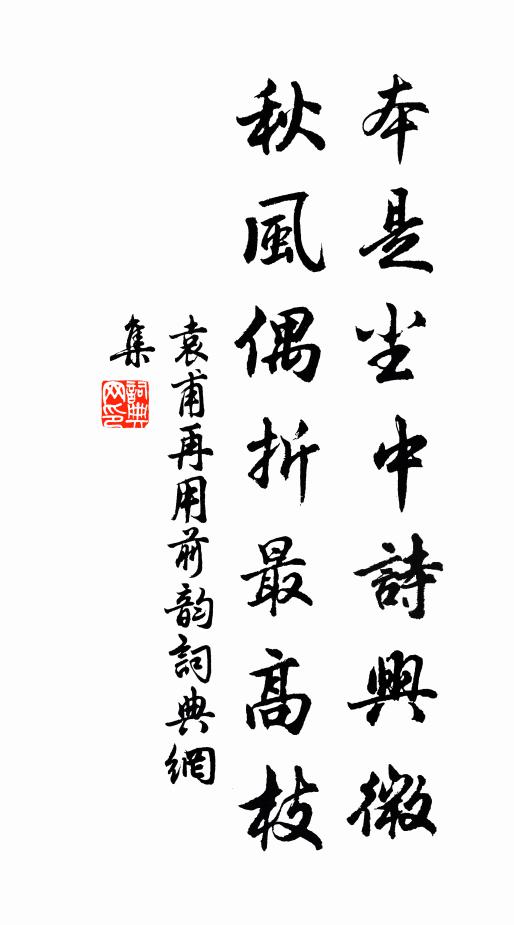 本是坐中詩興微
秋風偶折最高枝
袁甫再用前韵詞典網
集
詞典網印